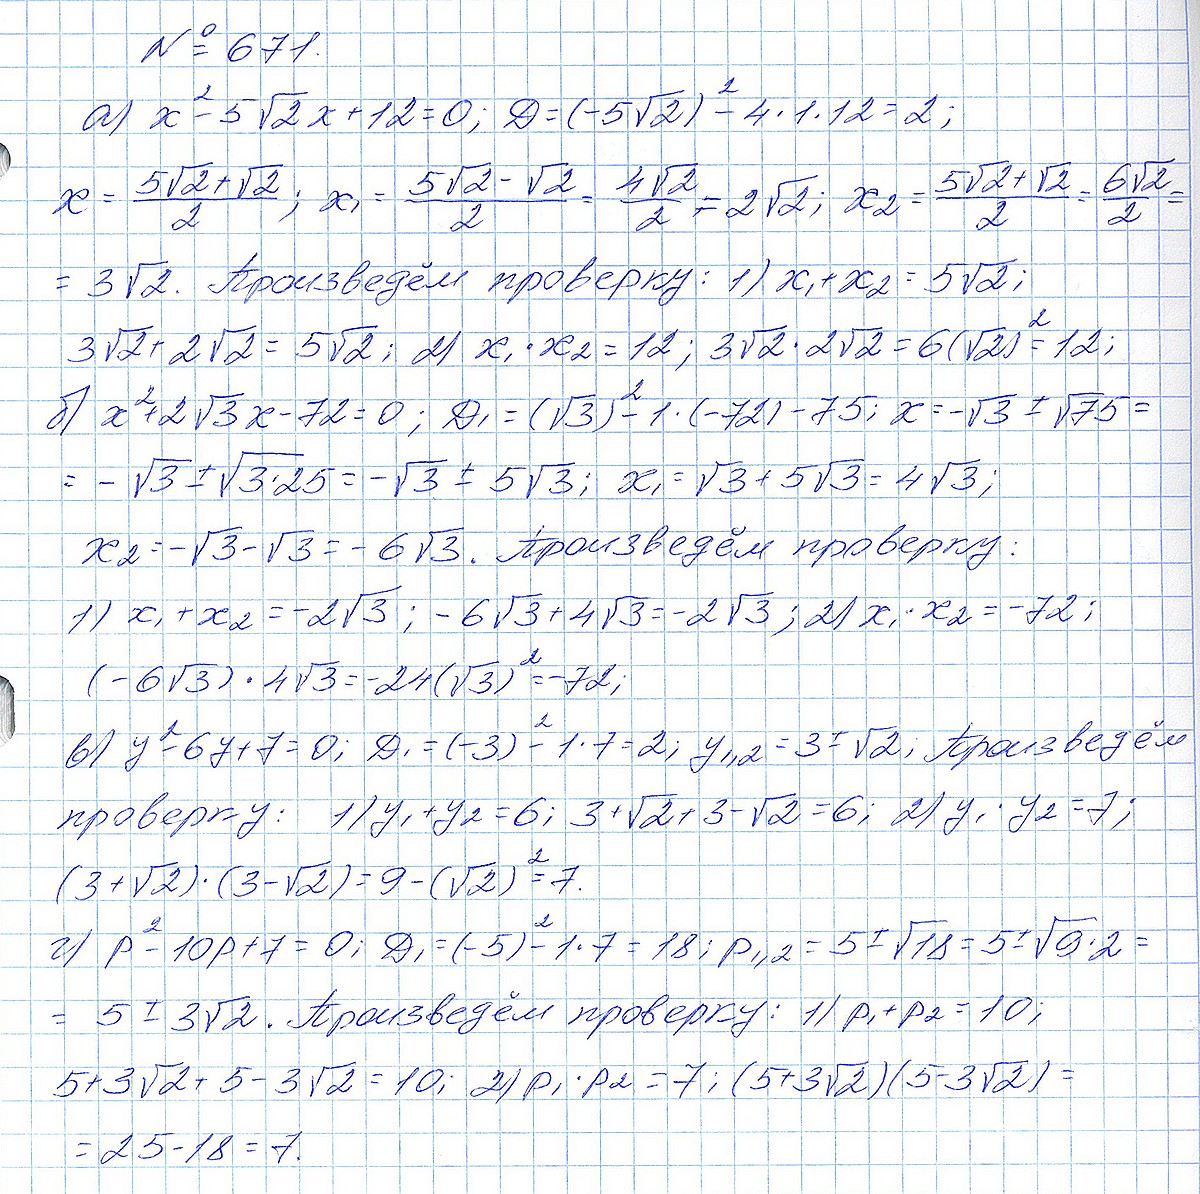 № 671.
а) x² - 5√2 x + 12 = 0; D = (-5√2)² - 4·1·12 = 2;
x = (5√2 + √2)/2; x₁ = (5√2 - √2)/2 = 4√2/2 = 2√2; x₂ = (5√2 + √2)/2 = 6√2/2 =
= 3√2. Произведём проверку: 1) x₁ + x₂ = 5√2;
3√2 + 2√2 = 5√2; 2) x₁ · x₂ = 12; 3√2 · 2√2 = 6(√2)² = 12;
б) x² + 2√3 x - 72 = 0; D₁ = (√3)² - 1·(-72) - 75; x = -√3 ± √75 =
= -√3 ± √3·25 = -√3 ± 5√3; x₁ = √3 + 5√3 = 4√3;
x₂ = -√3 - √3 = -6√3. Произведём проверку:
1) x₁ + x₂ = -2√3; -6√3 + 4√3 = -2√3; 2) x₁ · x₂ = -72;
(-6√3) · 4√3 = -24(√3)² = -72;
в) y² - 6y + 7 = 0; D₁ = (-3)² - 1·7 = 2; y₁,₂ = 3 ± √2; Произведём
проверку: 1) y₁ + y₂ = 6; 3 + √2 + 3 - √2 = 6; 2) y₁ · y₂ = 7;
(3 + √2) · (3 - √2) = 9 - (√2)² = 7.
г) p² - 10p + 7 = 0; D₁ = (-5)² - 1·7 = 18; p₁,₂ = 5 ± √18 = 5 ± √9·2 =
= 5 ± 3√2. Произведём проверку: 1) p₁ + p₂ = 10;
5 + 3√2 + 5 - 3√2 = 10; 2) p₁ · p₂ = 7; (5 + 3√2)(5 - 3√2) =
= 25 - 18 = 7.